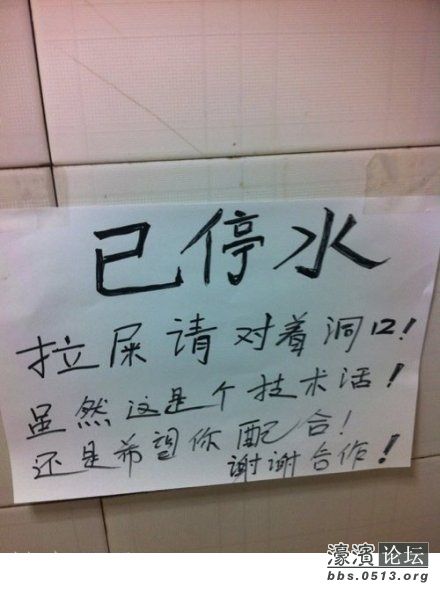 已停水
拉屎请对着洞口！
虽然这是个技术活！
还是希望你配合！
谢谢合作！
濠滨论坛
bbs.0513.org